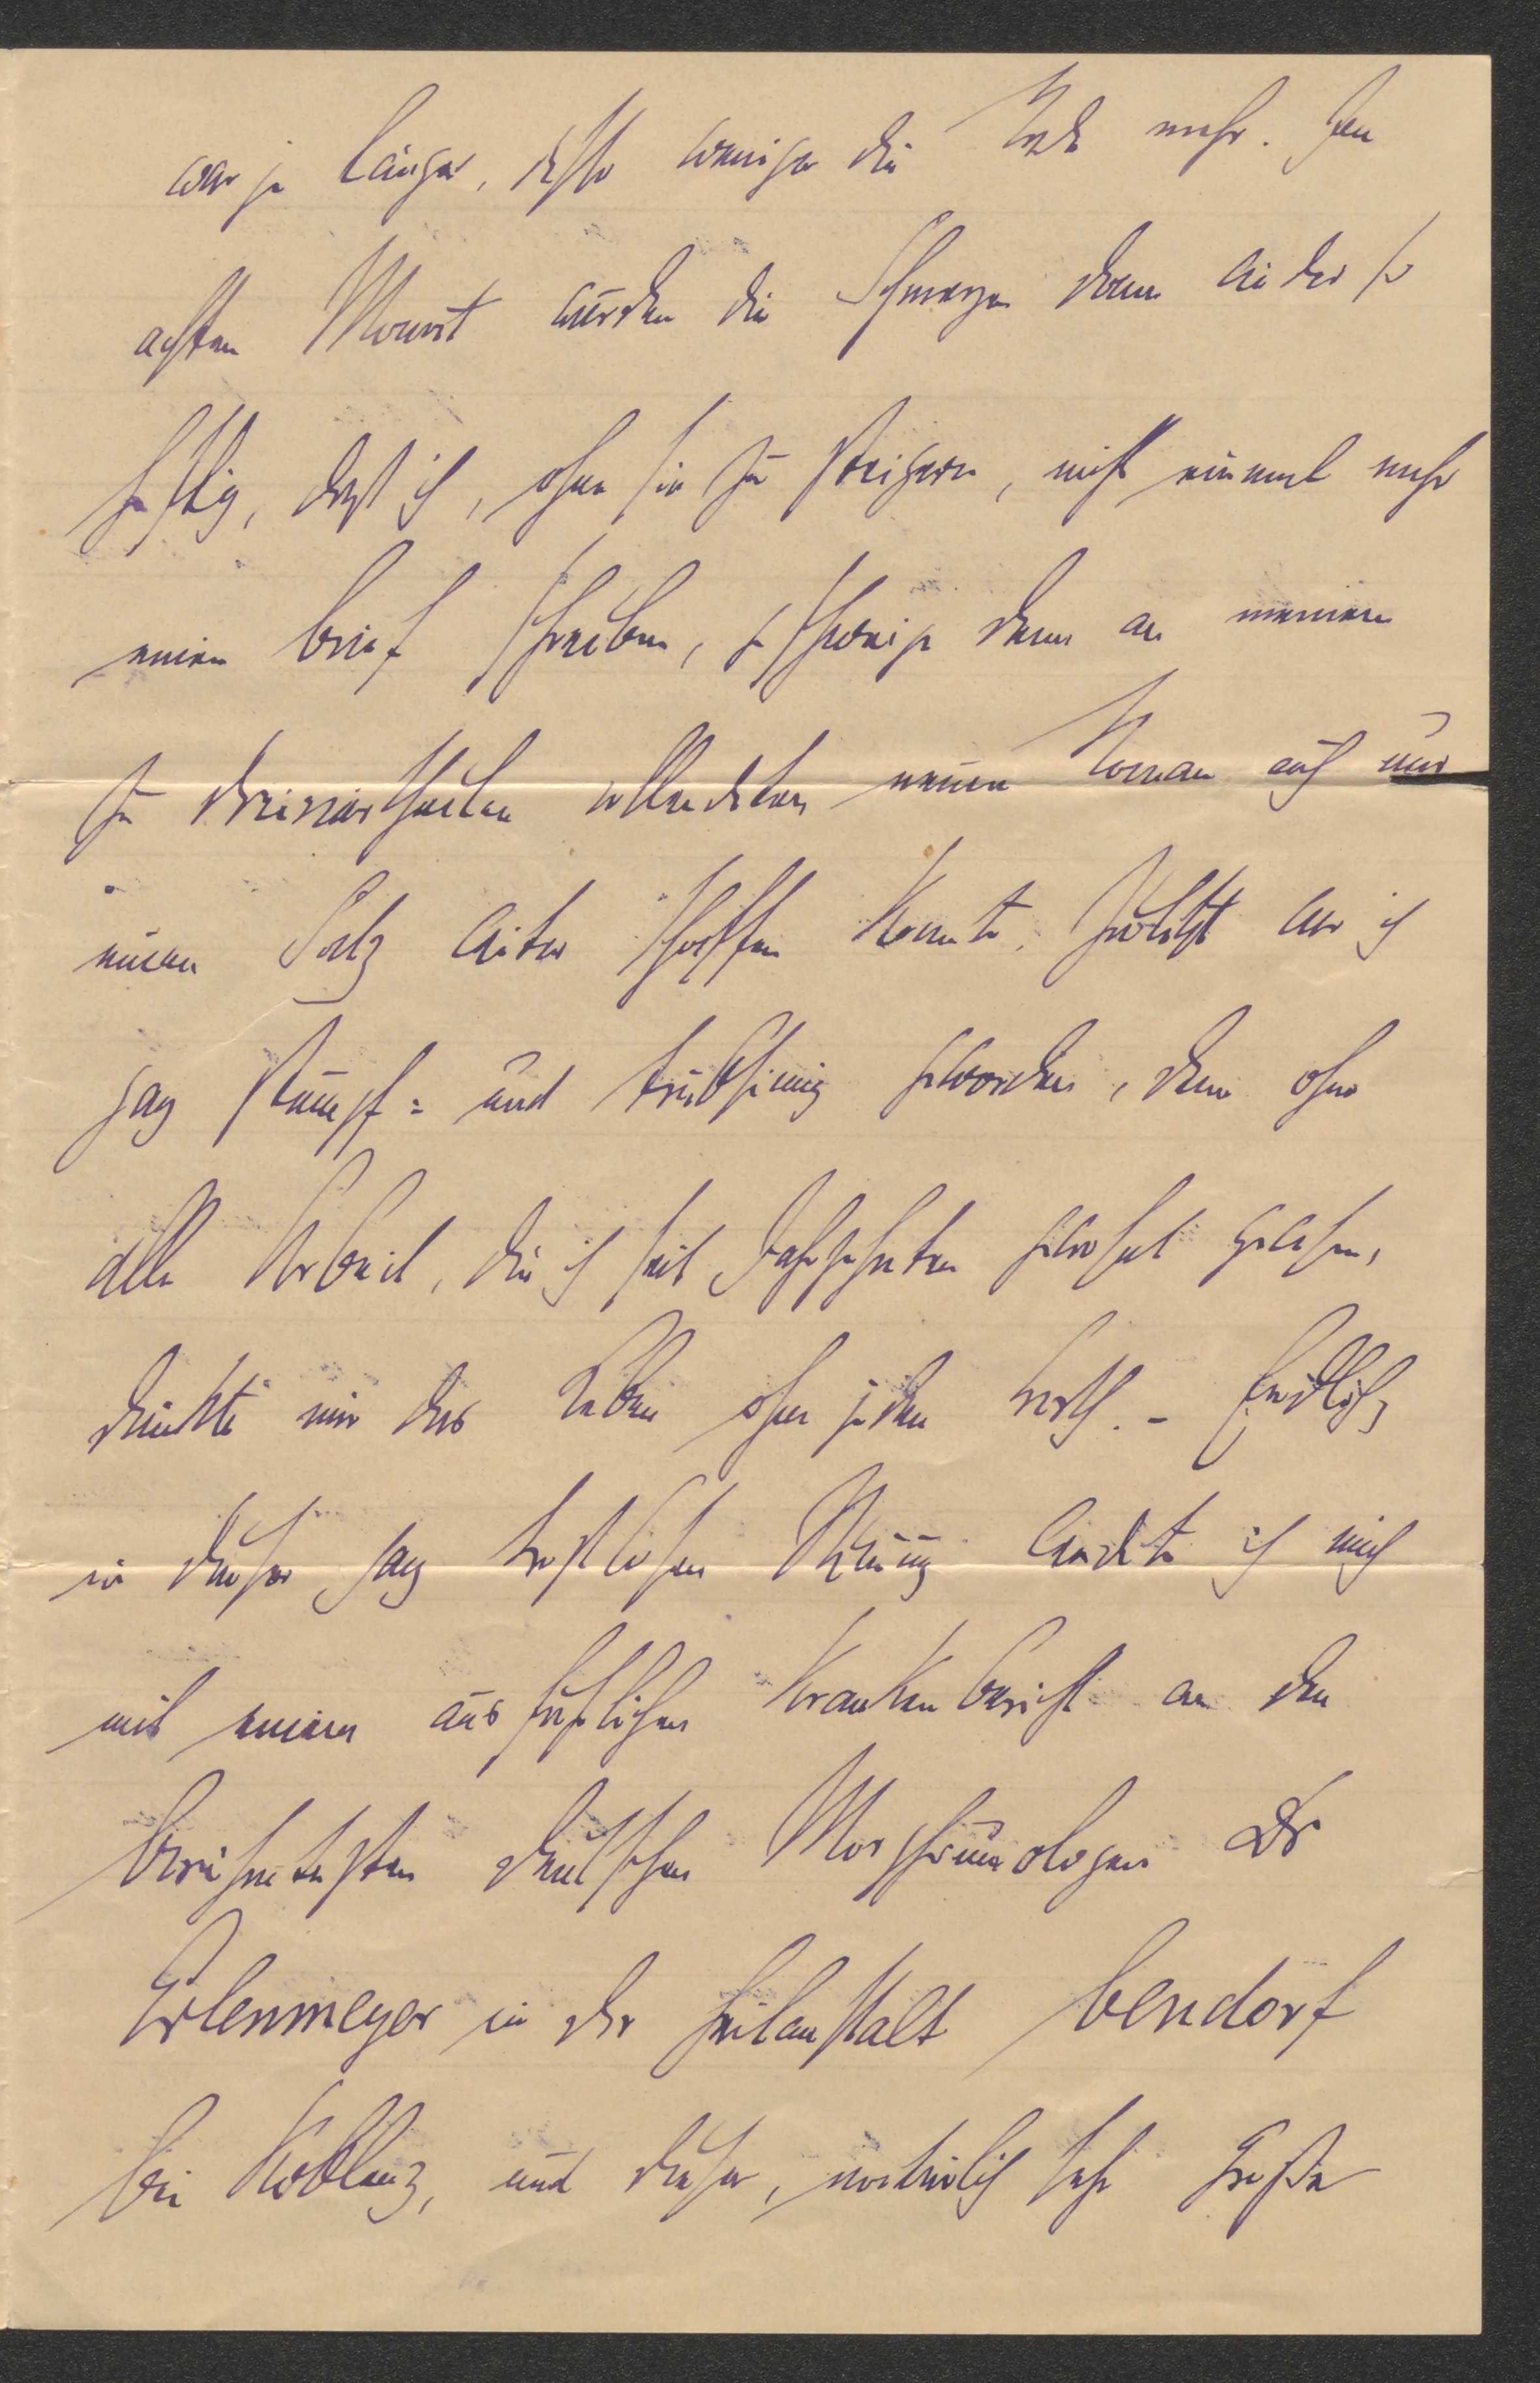 war je länger, desto weniger die Rede mehr. Im
achten Monat wurden die Schmerzen dann wieder so
heftig, daß ich, ohne sie zu steigern, nicht einmal mehr
einen Brief schreiben, geschweige denn an meinem
zu dreiviertheilen vollendeten neuen Roman auch nur
einen Satz weiter schaffen konnte. Zuletzt war ich
ganz stumpf= und trübsinnig geworden, denn ohne
alle Arbeit, die ich seit Jahrzehnten gewohnt gewesen,
deuchte mir das Leben ohne jeden Werth. – Endlich,
in dieser ganz trostlosen Stimmung wandte ich mich
mit einem ausführlichen Krankenbericht an den
berühmtesten deutschen Morphiumologen Dr
Erlenmeyer in der Heilanstalt Bendorf
bei Koblenz, und dieser, natürlich sehr große